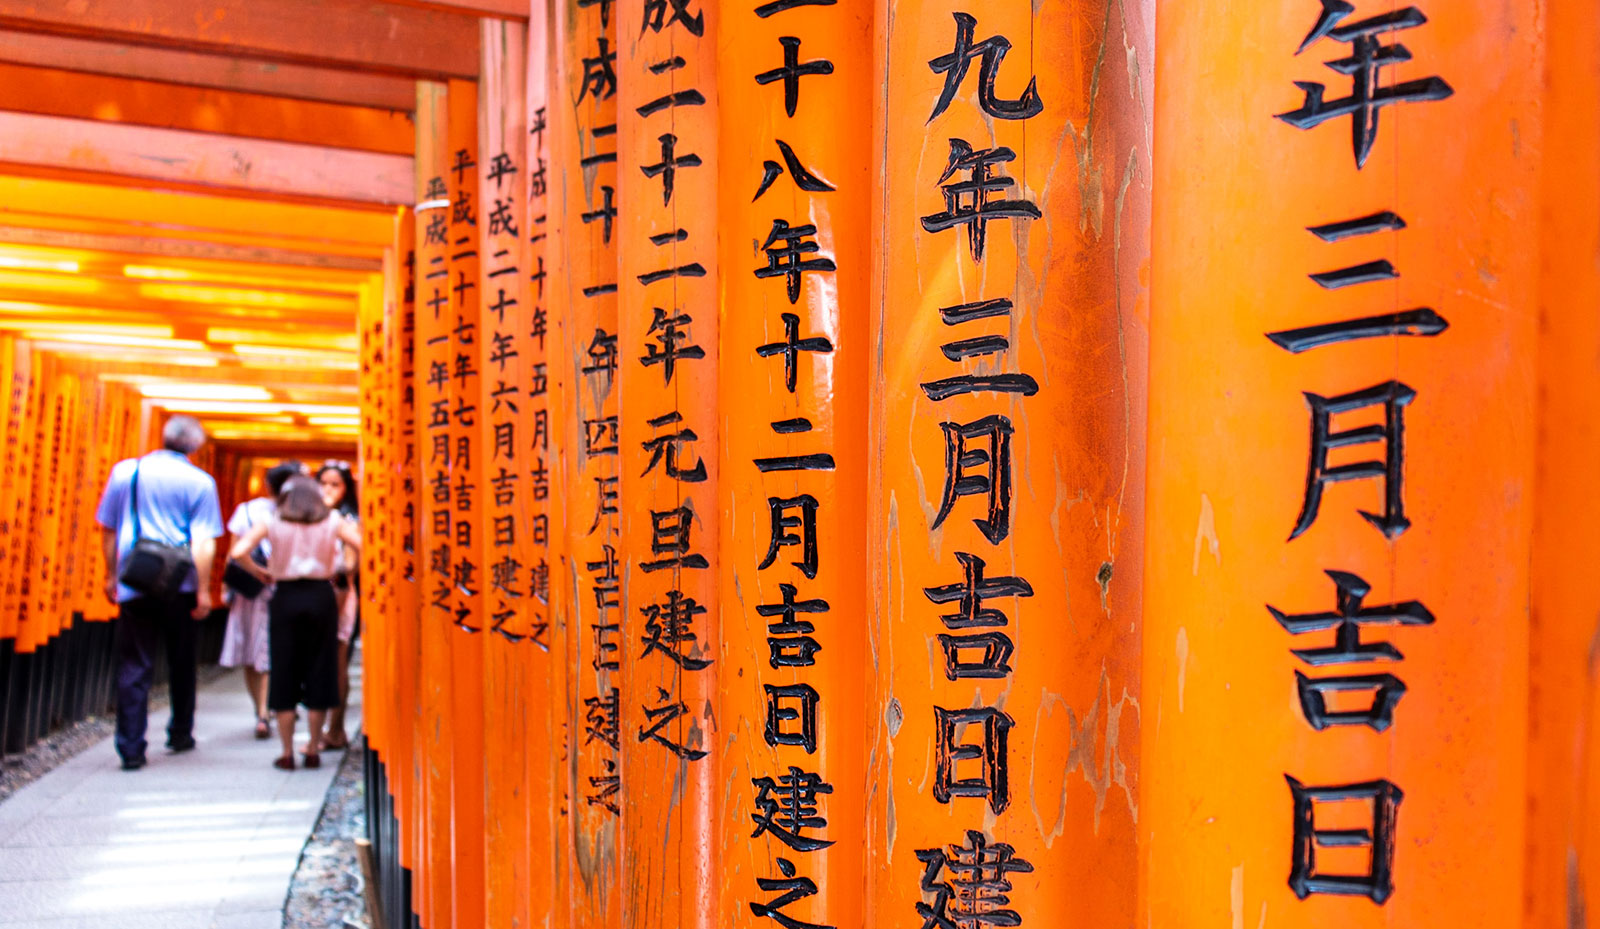 年三月吉日
九年三月吉日建
二十八年十二月吉日建之
成二十二年元旦建之
平成二十一年四月吉日建之
平成二十年五月吉日建之
平成二十年六月吉日建之
平成二十七年七月吉日建之
平成二十一年五月吉日建之